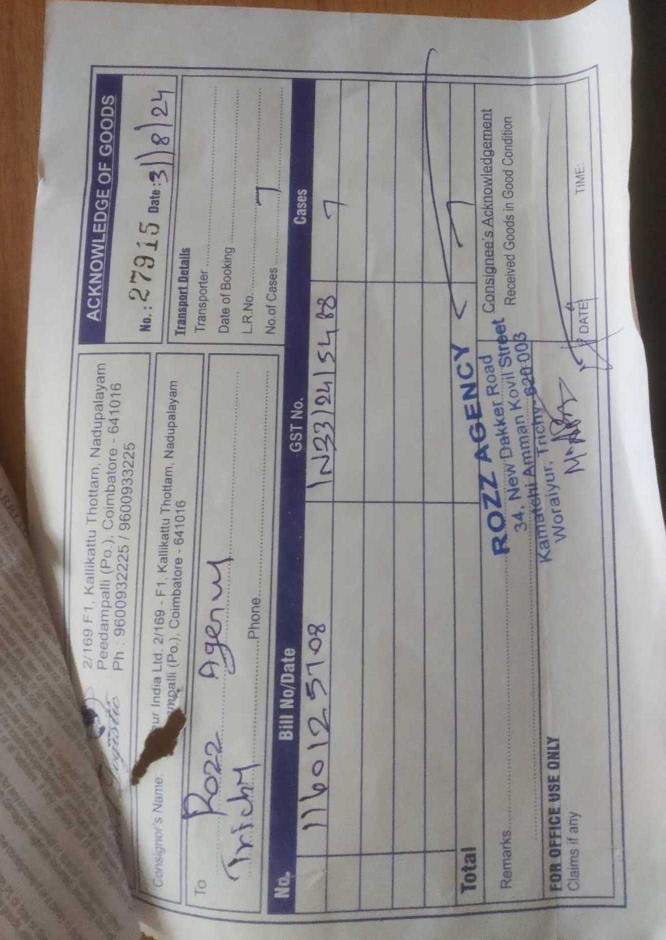 2/169 F1, Kallikattu Thottam, Nadupalayam
Peedampalli (Po.), Coimbatore - 641016
Ph : 9600932225 / 9600933225
ACKNOWLEDGE OF GOODS
No.: 27915 Date : 31/8/24
Consignor's Name: India Ltd. 2/169 - F1, Kallikattu Thottam, Nadupalayam
(Po.), Coimbatore - 641016
To Rozz Agency
Trichy
Phone
Transport Details
Transporter
Date of Booking
L.R.No.
No.of Cases 7
No. Bill No/Date GST No. Cases
1160125708 IN33/24/5488 7
Total 7
Remarks
ROZZ AGENCY
34, New Dakker Road
Kamatchi Amman Kovil Street
Woraiyur, Trichy - 620 003
Consignee's Acknowledgement
Received Goods in Good Condition
FOR OFFICE USE ONLY
Claims if any
DATE TIME: